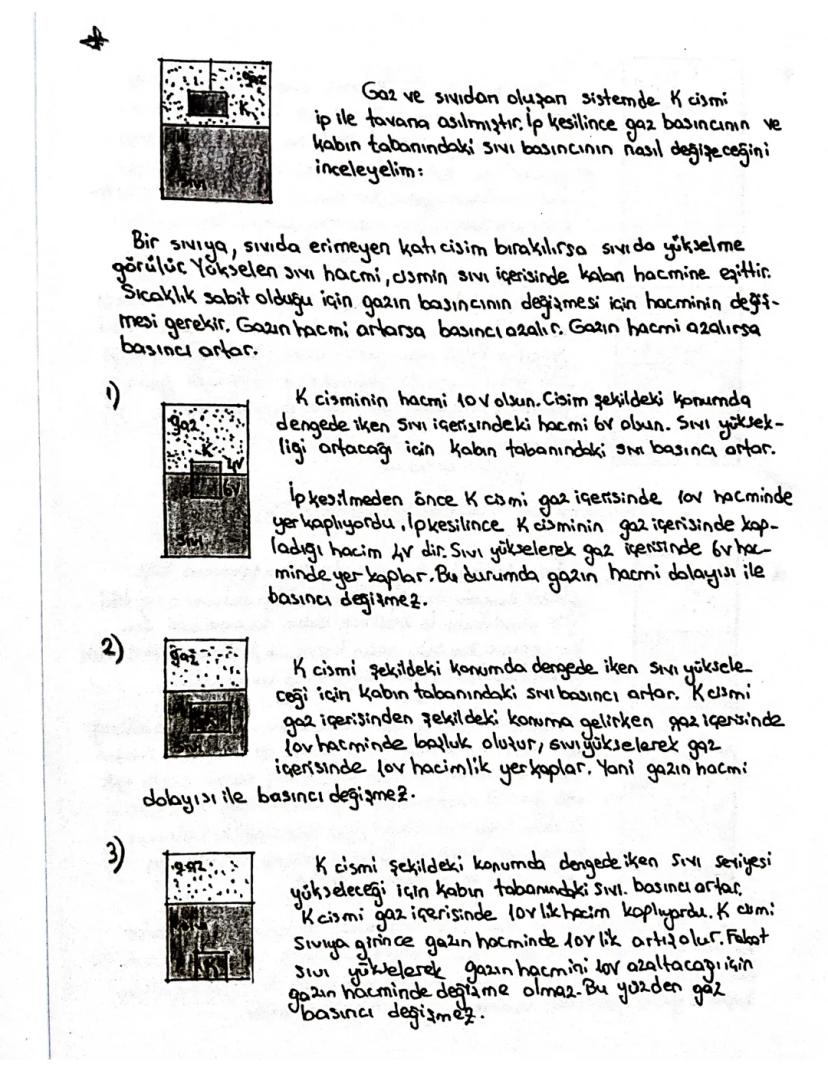 gaz
K
Sıvı
Gaz ve sıvıdan oluşan sistemde K cismi
ip ile tavana asılmıştır. İp kesilince gaz basıncının ve
kabın tabanındaki sıvı basıncının nasıl değişeceğini
inceleyelim:
Bir sıvıya, sıvıda erimeyen katı cisim bırakılırsa sıvıda yükselme
görülür. Yükselen sıvı hacmi, cismin sıvı içerisinde kalan hacmine eşittir.
Sıcaklık sabit olduğu için gazın basıncının değişmesi için hacminin değiş-
mesi gerekir. Gazın hacmi artarsa basıncı azalır. Gazın hacmi azalırsa
basıncı artar.
1)
gaz
K
4V
6V
Sıvı
K cisminin hacmi 10V olsun. Cisim şekildeki konumda
dengede iken sıvı içerisindeki hacmi 6V olsun. Sıvı yüksek-
liği artacağı için kabın tabanındaki sıvı basıncı artar.
İp kesilmeden önce K cismi gaz içerisinde 10V hacminde
yer kaplıyordu. İp kesilince K cisminin gaz içerisinde kap-
ladığı hacim 4V dir. Sıvı yükselerek gaz içerisinde 6V hac-
minde yer kaplar. Bu durumda gazın hacmi dolayısı ile
basıncı değişmez.
2)
gaz
Sıvı
K cismi şekildeki konumda dengede iken sıvı yüksele-
ceği için kabın tabanındaki sıvı basıncı artar. K cismi
gaz içerisinden şekildeki konuma gelirken gaz içerisinde
10V hacminde boşluk oluşur, sıvı yükselerek gaz
içerisinde 10V hacimlik yer kaplar. Yani gazın hacmi
dolayısı ile basıncı değişmez.
3)
gaz
K
K cismi şekildeki konumda dengede iken sıvı seviyesi
yükseleceği için kabın tabanındaki sıvı. basıncı artar.
K cismi gaz içerisinde 10V lik hacim kaplıyordu. K cismi
sıvıya girince gazın hacminde 10V lik artış olur. Fakat
sıvı yükselerek gazın hacmini 10V azaltacağı için
gazın hacminde değişme olmaz. Bu yüzden gaz
basıncı değişmez.